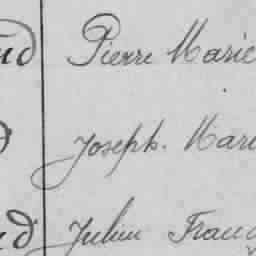 nd Pierre Marie
Joseph. Mari
nd Julien Franç